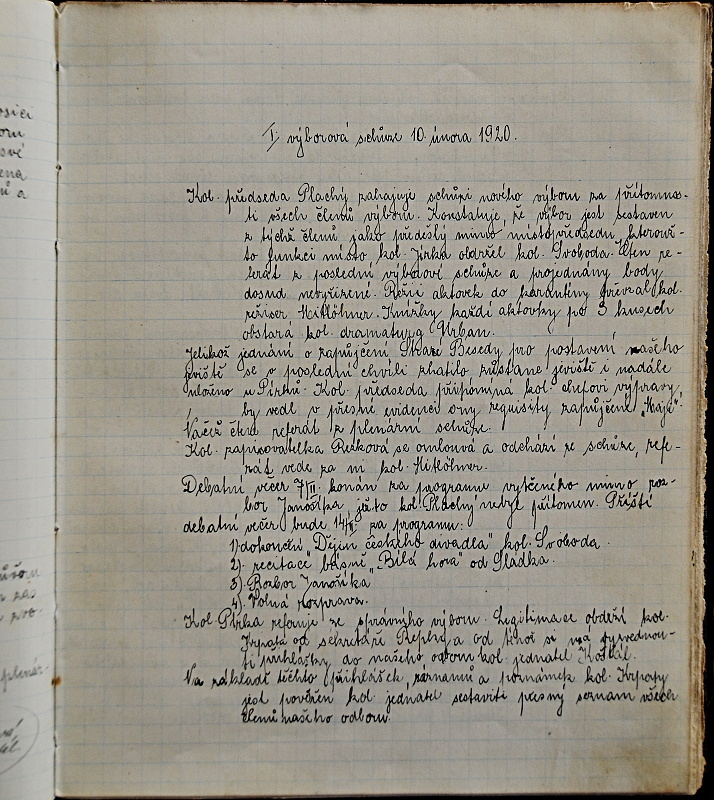 osici
oru
své
ena
ů a
I. výborová schůze 10. února 1920.
Kol. předseda Plachý zahajuje schůzi nového výboru za přítomnos-
ti všech členů výboru. Konstatuje, že výbor jest sestaven
z týchž členů jako předešlý mimo místopředsedu, kterou-
to funkci místo kol. Jirka obdržel kol. Svoboda. Čten re-
ferát z poslední výborové schůze a projednány body
dosud nevyřízené. Režii aktovek do karantény převzal kol.
režiser Mitlöhner. Knížky každé aktovky po 3 kusech
obstará kol. dramaturg Urban.
Jelikož jednání o zapůjčení Staré Besedy pro postavení našeho
jeviště se v poslední chvíli zhatilo zůstane jeviště i nadále
uloženo u Pírků. Kol. předseda připomíná kol. chefovi výpravy,
by vedl v přesné evidenci ony requisity zapůjčené „Máji“.
Načež čten referát z plenární schůze.
Kol. zapisovatelka Režková se omlouvá a odchází ze schůze, refe-
rát vede za ni kol. Mitlöhner.
Debatní večer 7/II. konán za programu vytčeného mimo roz-
bor Janošíka ježto kol. Plachý nebyl přítomen. Příští
debatní večer bude 14/II. za programu:
1) dokončení „Dějin českého divadla“ kol. Svoboda.
2). recitace básně „Bílá hora“ od Sládka.
3). Rozbor Janošíka
4). Volná rozprava.
Kol Pírka referuje ze správního výboru. Legitimace obdrží kol.
Krpata od sekretáře a od téhož si má vyzvednou-
ti přihlášky do našeho odboru kol. jednatel Košťál.
Na základě těchto přihlášek, záznamů a poznámek kol. Krpaty
jest pověřen kol. jednatel sestaviti přesný seznam všech
členů našeho odboru.